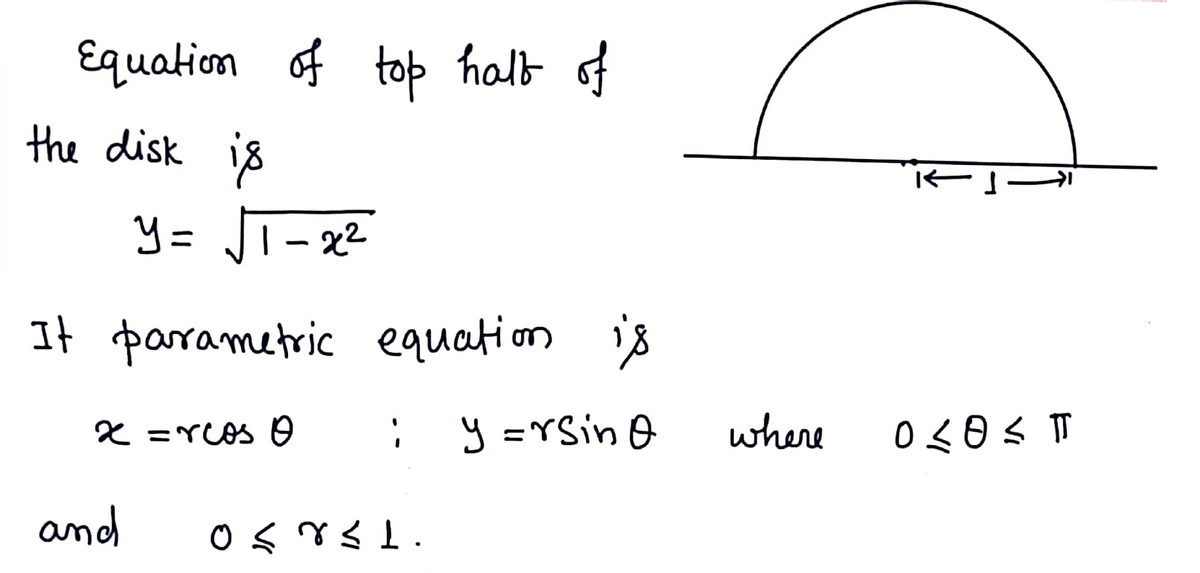 Equation of top half of
the disk is
y = √1 - x²
1
It parametric equation is
x = r cos θ ; y = r sin θ where 0 ≤ θ ≤ π
and 0 ≤ r ≤ 1.